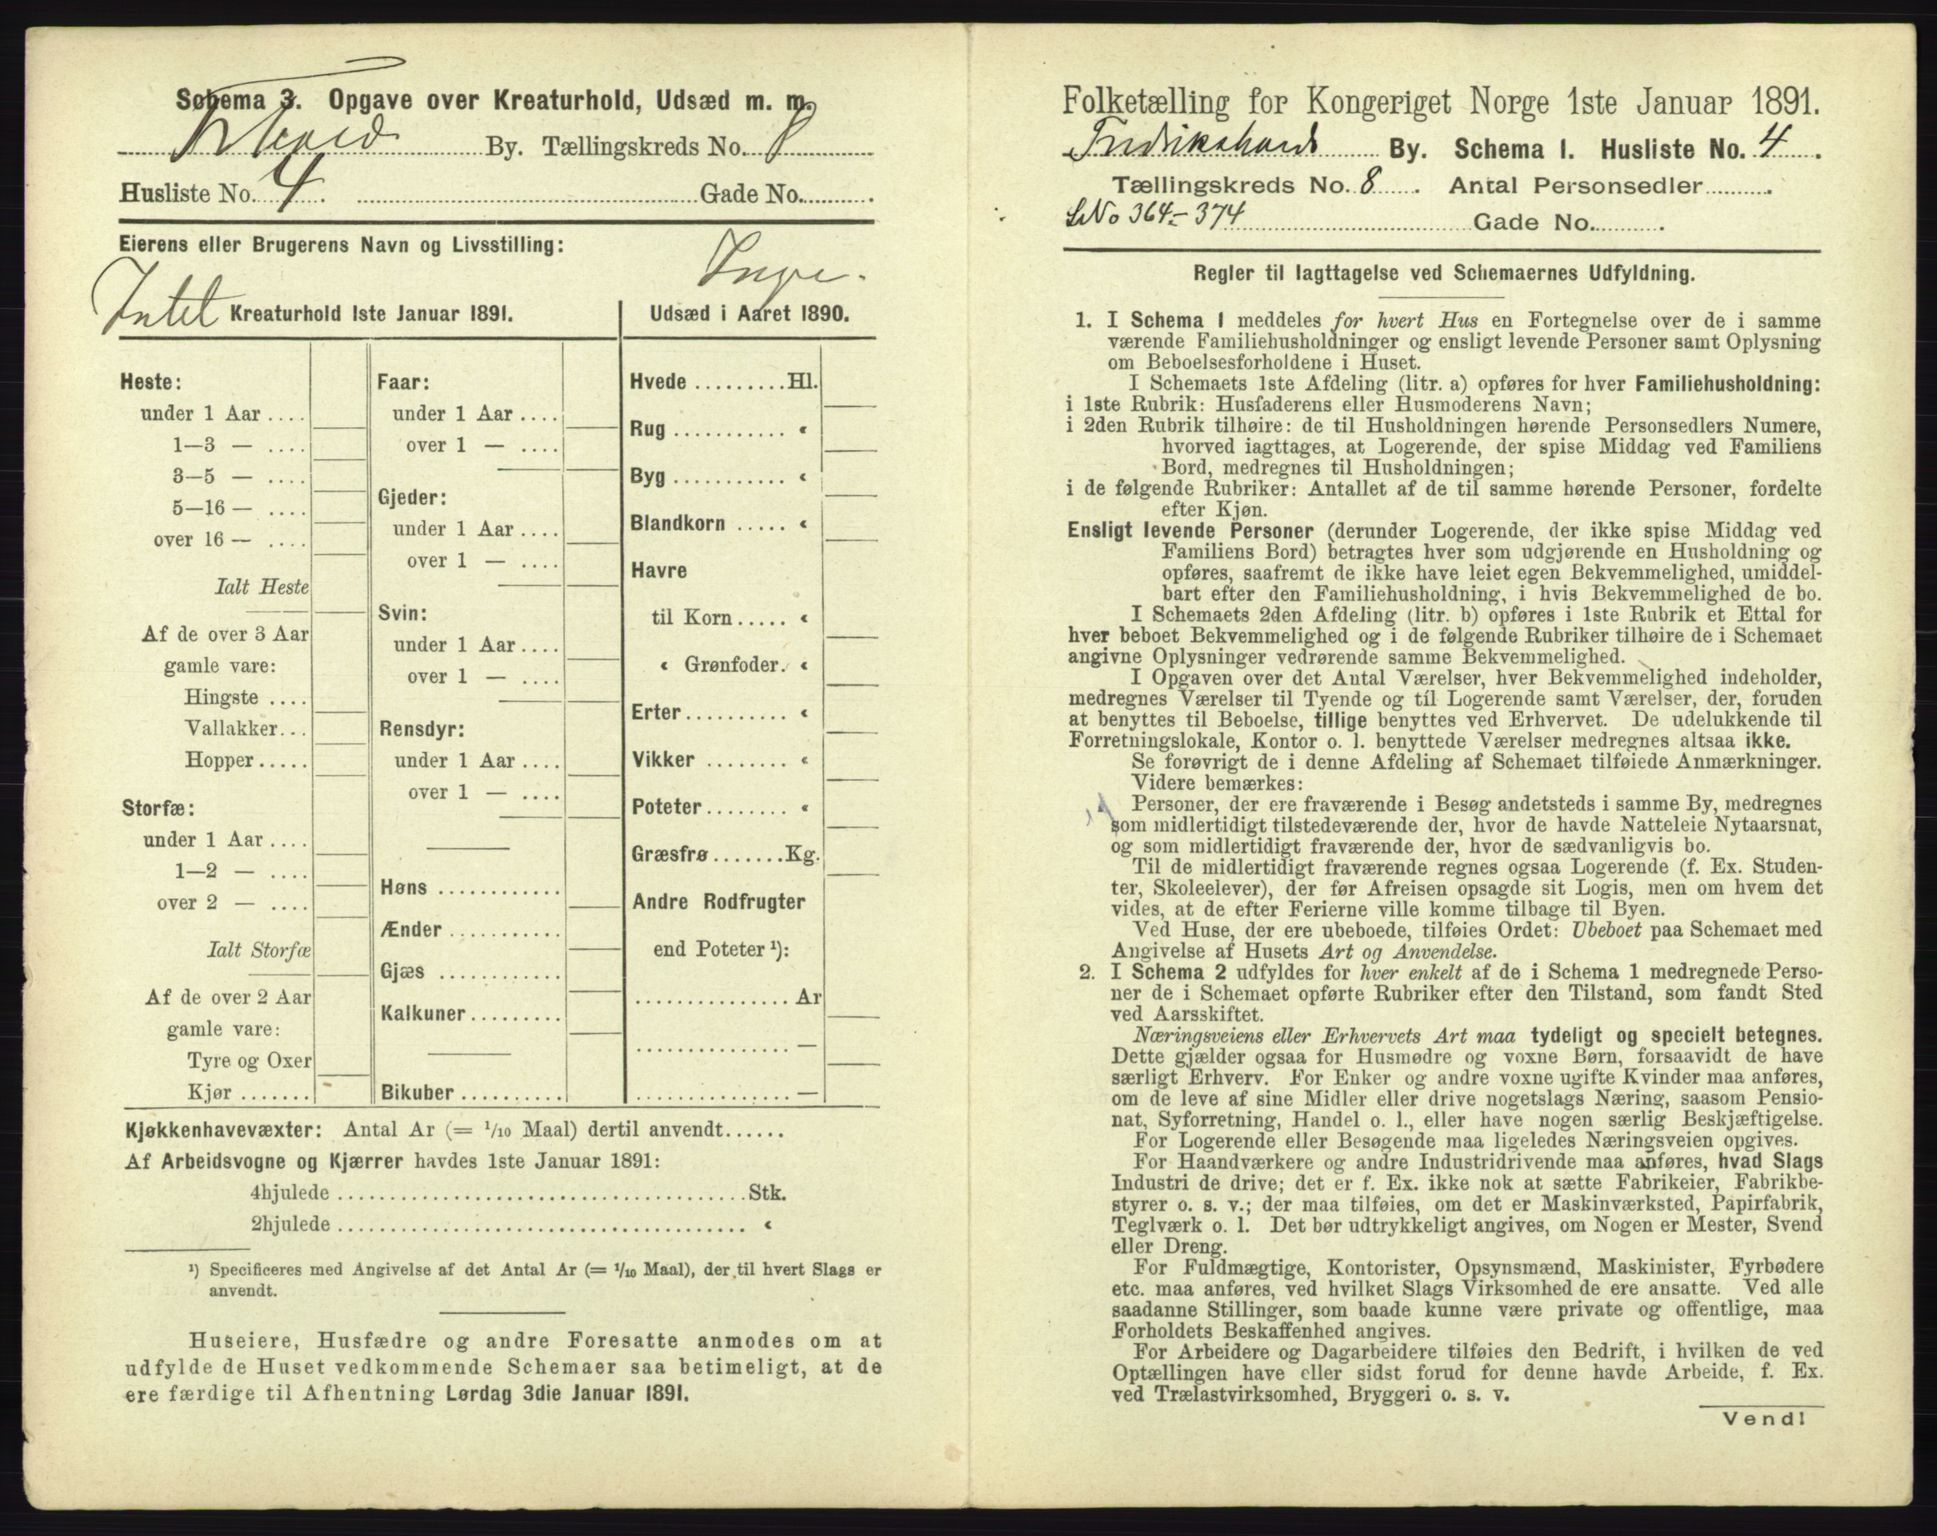 Schema 3. Opgave over Kreaturhold, Udsæd m. m.
Frhald By. Tællingskreds No. 8
Husliste No. 4. Gade No. .
Eierens eller Brugerens Navn og Livsstilling:
Intet Kreaturhold 1ste Januar 1891.
Heste:
under 1 Aar ....
1—3 — ....
3—5 — ....
5—16 — ....
over 16 — ....
Ialt Heste
Af de over 3 Aar
gamle vare:
Hingste ....
Vallakker...
Hopper.....
Storfæ:
under 1 Aar ....
1—2 — ....
over 2 — ....
Ialt Storfæ
Af de over 2 Aar
gamle vare:
Tyre og Oxer
Kjør .......
Faar:
under 1 Aar ....
over 1 — ....
Gjeder:
under 1 Aar ....
over 1 — ....
Svin:
under 1 Aar ....
over 1 — ....
Rensdyr:
under 1 Aar ....
over 1 — ....
Høns ............
Ænder ...........
Gjæs ............
Kalkuner.........
Bikuber ..........
Ingen.
Udsæd i Aaret 1890.
Hvede .........Hl.
Rug ........... «
Byg ........... «
Blandkorn ..... «
Havre
til Korn ..... «
« Grønfoder. «
Erter.......... «
Vikker ........ «
Poteter........ «
Græsfrø .......Kg.
Andre Rodfrugter
end Poteter ¹):
............... Ar
............... —
............... —
Kjøkkenhavevæxter: Antal Ar (= 1/10 Maal) dertil anvendt......
Af Arbeidsvogne og Kjærrer havdes 1ste Januar 1891:
4hjulede ........................................ Stk.
2hjulede ........................................ «
¹) Specificeres med Angivelse af det Antal Ar (= 1/10 Maal), der til hvert Slags er
anvendt.
Huseiere, Husfædre og andre Foresatte anmodes om at
udfylde de Huset vedkommende Schemaer saa betimeligt, at de
ere færdige til Afhentning Lørdag 3die Januar 1891.
Folketælling for Kongeriget Norge 1ste Januar 1891.
Fredrikshald By. Schema I. Husliste No. 4 .
Tællingskreds No. 8 . Antal Personsedler .
LNo 364-374 Gade No. .
Regler til Iagttagelse ved Schemaernes Udfyldning.
1. I Schema 1 meddeles for hvert Hus en Fortegnelse over de i samme
værende Familiehusholdninger og ensligt levende Personer samt Oplysning
om Beboelsesforholdene i Huset.
I Schemaets 1ste Afdeling (litr. a) opføres for hver Familiehusholdning:
i 1ste Rubrik: Husfaderens eller Husmoderens Navn;
i 2den Rubrik tilhøire: de til Husholdningen hørende Personsedlers Numere,
hvorved iagttages, at Logerende, der spise Middag ved Familiens
Bord, medregnes til Husholdningen;
i de følgende Rubriker: Antallet af de til samme hørende Personer, fordelte
efter Kjøn.
Ensligt levende Personer (derunder Logerende, der ikke spise Middag ved
Familiens Bord) betragtes hver som udgjørende en Husholdning og
opføres, saafremt de ikke have leiet egen Bekvemmelighed, umiddel-
bart efter den Familiehusholdning, i hvis Bekvemmelighed de bo.
I Schemaets 2den Afdeling (litr. b) opføres i 1ste Rubrik et Ettal for
hver beboet Bekvemmelighed og i de følgende Rubriker tilhøire de i Schemaet
angivne Oplysninger vedrørende samme Bekvemmelighed.
I Opgaven over det Antal Værelser, hver Bekvemmelighed indeholder,
medregnes Værelser til Tyende og til Logerende samt Værelser, der, foruden
at benyttes til Beboelse, tillige benyttes ved Erhvervet. De udelukkende til
Forretningslokale, Kontor o. l. benyttede Værelser medregnes altsaa ikke.
Se forøvrigt de i denne Afdeling af Schemaet tilføiede Anmærkninger.
Videre bemærkes:
Personer, der ere fraværende i Besøg andetsteds i samme By, medregnes
som midlertidigt tilstedeværende der, hvor de havde Natteleie Nytaarsnat,
og som midlertidigt fraværende der, hvor de sædvanligvis bo.
Til de midlertidigt fraværende regnes ogsaa Logerende (f. Ex. Studen-
ter, Skoleelever), der før Afreisen opsagde sit Logis, men om hvem det
vides, at de efter Ferierne ville komme tilbage til Byen.
Ved Huse, der ere ubeboede, tilføies Ordet: Ubeboet paa Schemaet med
Angivelse af Husets Art og Anvendelse.
2. I Schema 2 udfyldes for hver enkelt af de i Schema 1 medregnede Perso-
ner de i Schemaet opførte Rubriker efter den Tilstand, som fandt Sted
ved Aarsskiftet.
Næringsveiens eller Erhvervets Art maa tydeligt og specielt betegnes.
Dette gjælder ogsaa for Husmødre og voxne Børn, forsaavidt de have
særligt Erhverv. For Enker og andre voxne ugifte Kvinder maa anføres,
om de leve af sine Midler eller drive nogetslags Næring, saasom Pensio-
nat, Syforretning, Handel o. l., eller have nogen særlig Beskjæftigelse.
For Logerende eller Besøgende maa ligeledes Næringsveien opgives.
For Haandværkere og andre Industridrivende maa anføres, hvad Slags
Industri de drive; det er f. Ex. ikke nok at sætte Fabrikeier, Fabrikbe-
styrer o. s. v.; der maa tilføies, om det er Maskinværksted, Papirfabrik,
Teglværk o. l. Det bør udtrykkeligt angives, om Nogen er Mester, Svend
eller Dreng.
For Fuldmægtige, Kontorister, Opsynsmænd, Maskinister, Fyrbødere
etc. maa anføres, ved hvilket Slags Virksomhed de ere ansatte. Ved alle
saadanne Stillinger, som baade kunne være private og offentlige, maa
Forholdets Beskaffenhed angives.
For Arbeidere og Dagarbeidere tilføies den Bedrift, i hvilken de ved
Optællingen have eller sidst forud for denne havde Arbeide, f. Ex.
ved Trælastvirksomhed, Bryggeri o. s. v.
Vend!